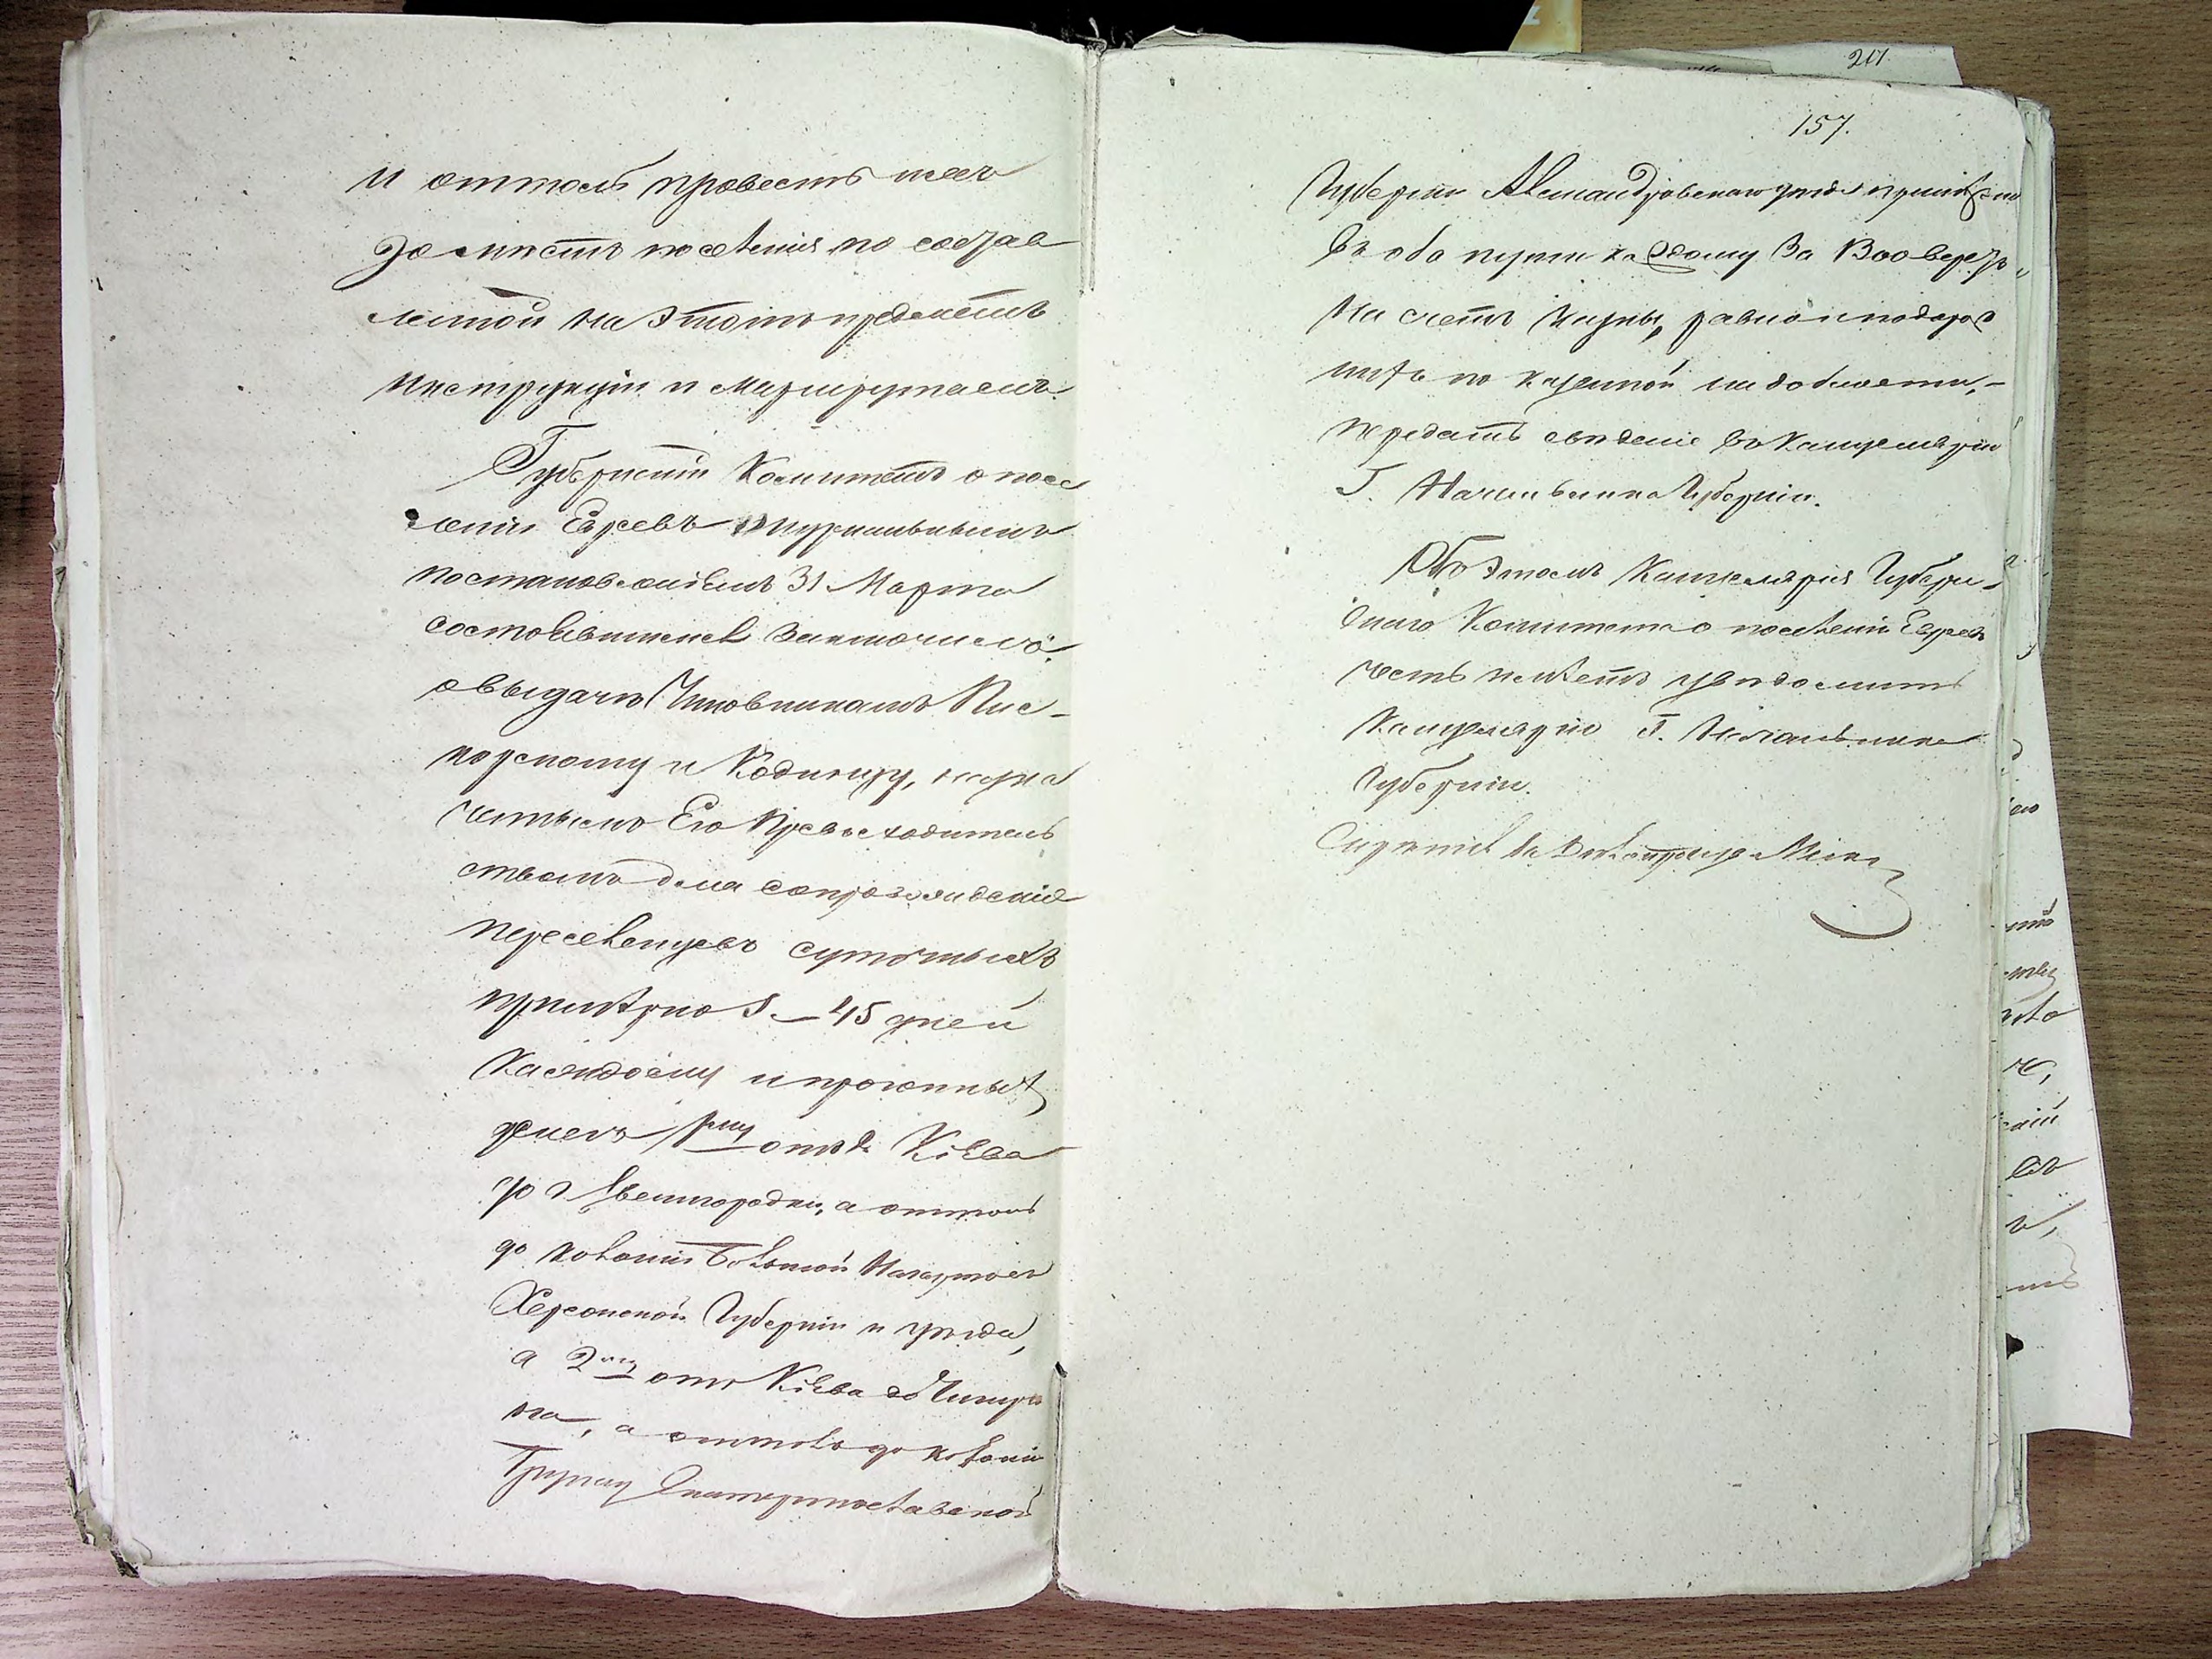 и оттоль провесть ихъ
до мѣстъ поселенія по состав
ленной на этотъ предметъ
инструкціи и маршрутамъ.
Губернскій Комитетъ о посе
леніи Евреевъ журнальнымъ
постановленіемъ 31 Марта
состоявшимся заключилъ:
о выдачѣ Чиновникамъ
и назна
ченнымъ Его Превосходитель
ствомъ для сопровожденія
переселенцевъ суточныхъ
примѣрно 45 дней
каждому и прогонныхъ
денегъ 1му отъ Кіева
до г Звенигородки, а оттоль
до колоніи Большой Нагартовъ
Херсонской Губерніи и уѣзда,
а 2му отъ Кіева до Чигири
на, а оттоль до колоніи
Екатеринославской
157.
Губерніи Александровскаго уѣзда примѣрно
въ оба пути каждому за верстъ,
на счетъ казны, равно и подорож
по казенной надобности,
передать свѣденіе въ Канцелярію
Г. Начальника Губерніи.
Объ этомъ Канцелярія Губерн-
скаго Комитета о поселеніи Евреевъ
честь имѣетъ увѣдомить
Канцелярію Г. Начальника
Губерніи.
217